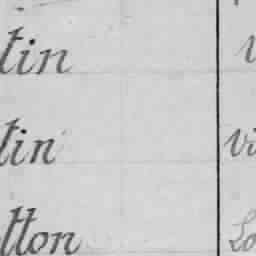 tin
tin Vi
tton Lo